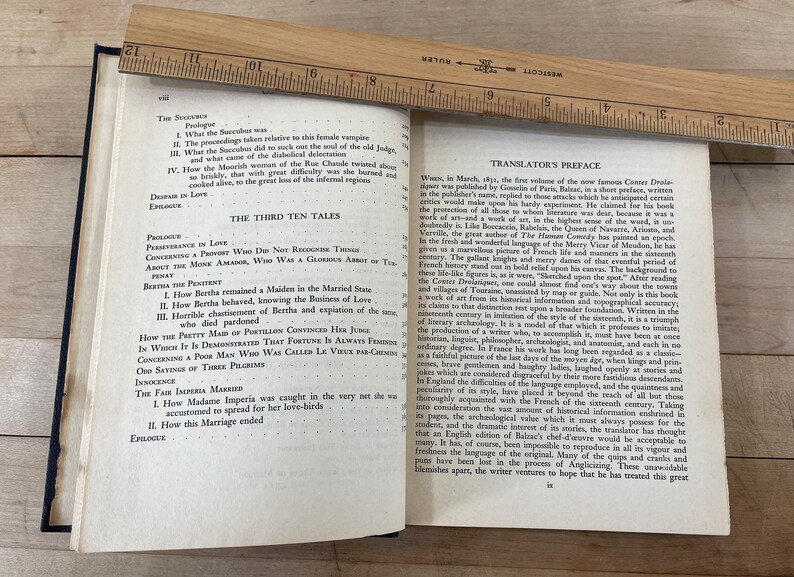 12 11 10 9 8 7 6 5 4 3 2 1
RULER WESTCOTT
viii
THE SUCCUBUS
Prologue
I. What the Succubus was
II. The proceedings taken relative to this female vampire
III. What the Succubus did to suck out the soul of the old Judge,
and what came of the diabolical delectation
IV. How the Moorish woman of the Rue Chaude twisted about
so briskly, that with great difficulty was she burned and
cooked alive, to the great loss of the infernal regions
DESPAIR IN LOVE
EPILOGUE
THE THIRD TEN TALES
PROLOGUE
PERSEVERANCE IN LOVE
CONCERNING A PROVOST WHO DID NOT RECOGNISE THINGS
ABOUT THE MONK AMADOR, WHO WAS A GLORIOUS ABBOT OF TUR-
PENAY
BERTHA THE PENITENT
I. How Bertha remained a Maiden in the Married State
II. How Bertha behaved, knowing the Business of Love
III. Horrible chastisement of Bertha and expiation of the same,
who died pardoned
HOW THE PRETTY MAID OF PORTILLON CONVINCED HER JUDGE
IN WHICH IT IS DEMONSTRATED THAT FORTUNE IS ALWAYS FEMININE
CONCERNING A POOR MAN WHO WAS CALLED LE VIEUX PAR-CHEMINS
ODD SAYINGS OF THREE PILGRIMS
INNOCENCE
THE FAIR IMPERIA MARRIED
I. How Madame Imperia was caught in the very net she was
accustomed to spread for her love-birds
II. How this Marriage ended
EPILOGUE
TRANSLATOR'S PREFACE
WHEN, in March, 1832, the first volume of the now famous Contes Drola-
tiques was published by Gosselin of Paris, Balzac, in a short preface, written
in the publisher's name, replied to those attacks which he anticipated certain
critics would make upon his hardy experiment. He claimed for his book
the protection of all those to whom literature was dear, because it was a
work of art—and a work of art, in the highest sense of the word, it un-
doubtedly is. Like Boccaccio, Rabelais, the Queen of Navarre, Ariosto, and
Verville, the great author of The Human Comedy has painted an epoch.
In the fresh and wonderful language of the Merry Vicar of Meudon, he has
given us a marvellous picture of French life and manners in the sixteenth
century. The gallant knights and merry dames of that eventful period of
French history stand out in bold relief upon his canvas. The background to
these life-like figures is, as it were, "Sketched upon the spot." After reading
the Contes Drolatiques, one could almost find one's way about the towns
and villages of Touraine, unassisted by map or guide. Not only is this book
a work of art from its historical information and topographical accuracy;
its claims to that distinction rest upon a broader foundation. Written in the
nineteenth century in imitation of the style of the sixteenth, it is a triumph
of literary archæology. It is a model of that which it professes to imitate;
the production of a writer who, to accomplish it, must have been at once
historian, linguist, philosopher, archæologist, and anatomist, and each in no
ordinary degree. In France his work has long been regarded as a classic—
as a faithful picture of the last days of the moyen âge, when kings and prin-
cesses, brave gentlemen and haughty ladies, laughed openly at stories and
jokes which are considered disgraceful by their more fastidious descendants.
In England the difficulties of the language employed, and the quaintness and
peculiarity of its style, have placed it beyond the reach of all but those
thoroughly acquainted with the French of the sixteenth century. Taking
into consideration the vast amount of historical information enshrined in
its pages, the archæological value which it must always possess for the
student, and the dramatic interest of its stories, the translator has thought
that an English edition of Balzac's chef-d'œuvre would be acceptable to
many. It has, of course, been impossible to reproduce in all its vigour and
freshness the language of the original. Many of the quips and cranks and
puns have been lost in the process of Anglicizing. These unavoidable
blemishes apart, the writer ventures to hope that he has treated this great
ix